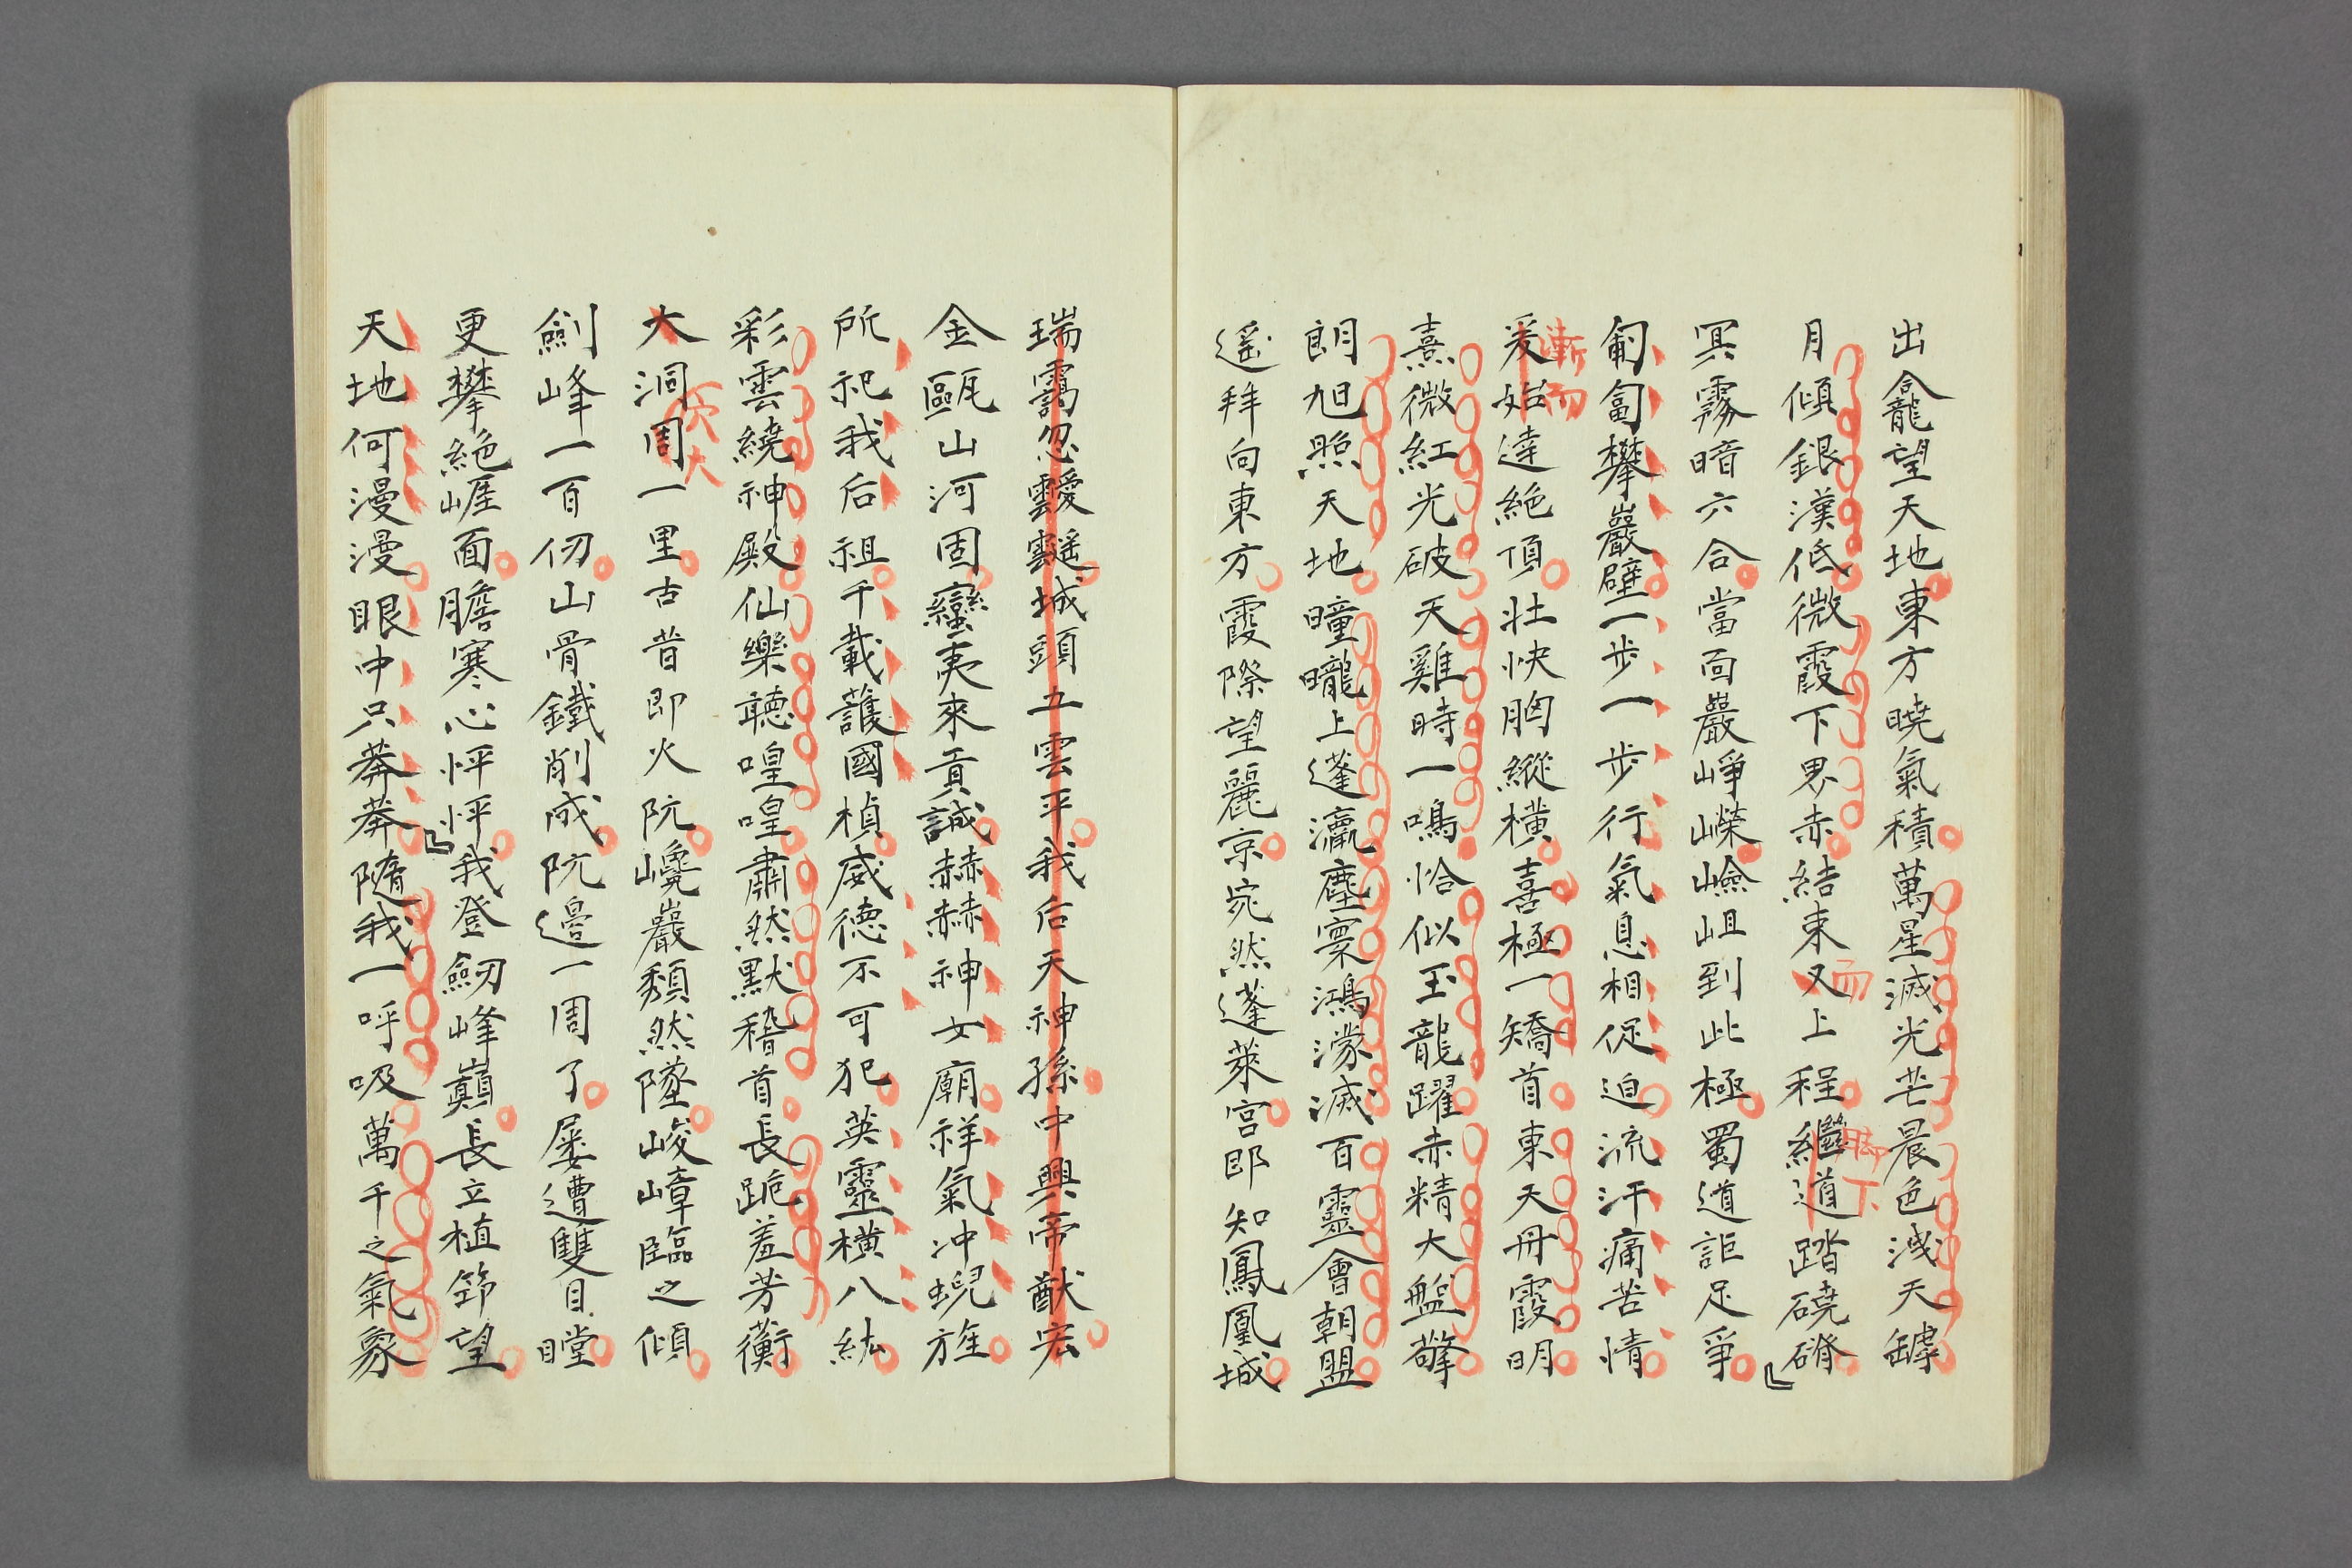 出龕望天地東方曉氣積萬星滅光芒晨色洩天罅
月傾銀漢低微霞下界赤結束又上程繼道踏磽磱
而
脚下
冥霧暗六合當面巖崢嶸嶮岨到此極蜀道詎足爭
匍匐攀巖壁一步一步行氣息相促迫流汗痛苦情
爰始達絶頂壯快胸縱橫喜極一矯首東天丹霞明
漸而
熹微紅光破天雞時一鳴恰似玉龍躍赤精大盤擎
朗旭照天地曈曨上蓬瀛塵寰鴻濛滅百靈會朝盟
遥拜向東方霞際望麗京宛然蓬萊宮即知鳳凰城
瑞靄忽靉靆城頭五雲平我后天神孫中興帝猷宏
金甌山河固蠻夷來貢誠赫赫神女廟祥氣冲蜺旌
所祀我后祖千載護國楨威德不可犯英靈横八紘
彩雲繞神殿仙樂聴喤喤肅然默稽首長跪羞芳蘅
大洞周一里古昔即火阬巉巖頽然墜峻嶂臨之傾
穴大
劍峰一百仞山骨鐵削成阬邉一周了屡遭雙目瞠
更攀絶崕面膽寒心怦怦我登劒峰巓長立植筇望
天地何漫漫眼中只莽莽隨我一呼吸萬千之氣象